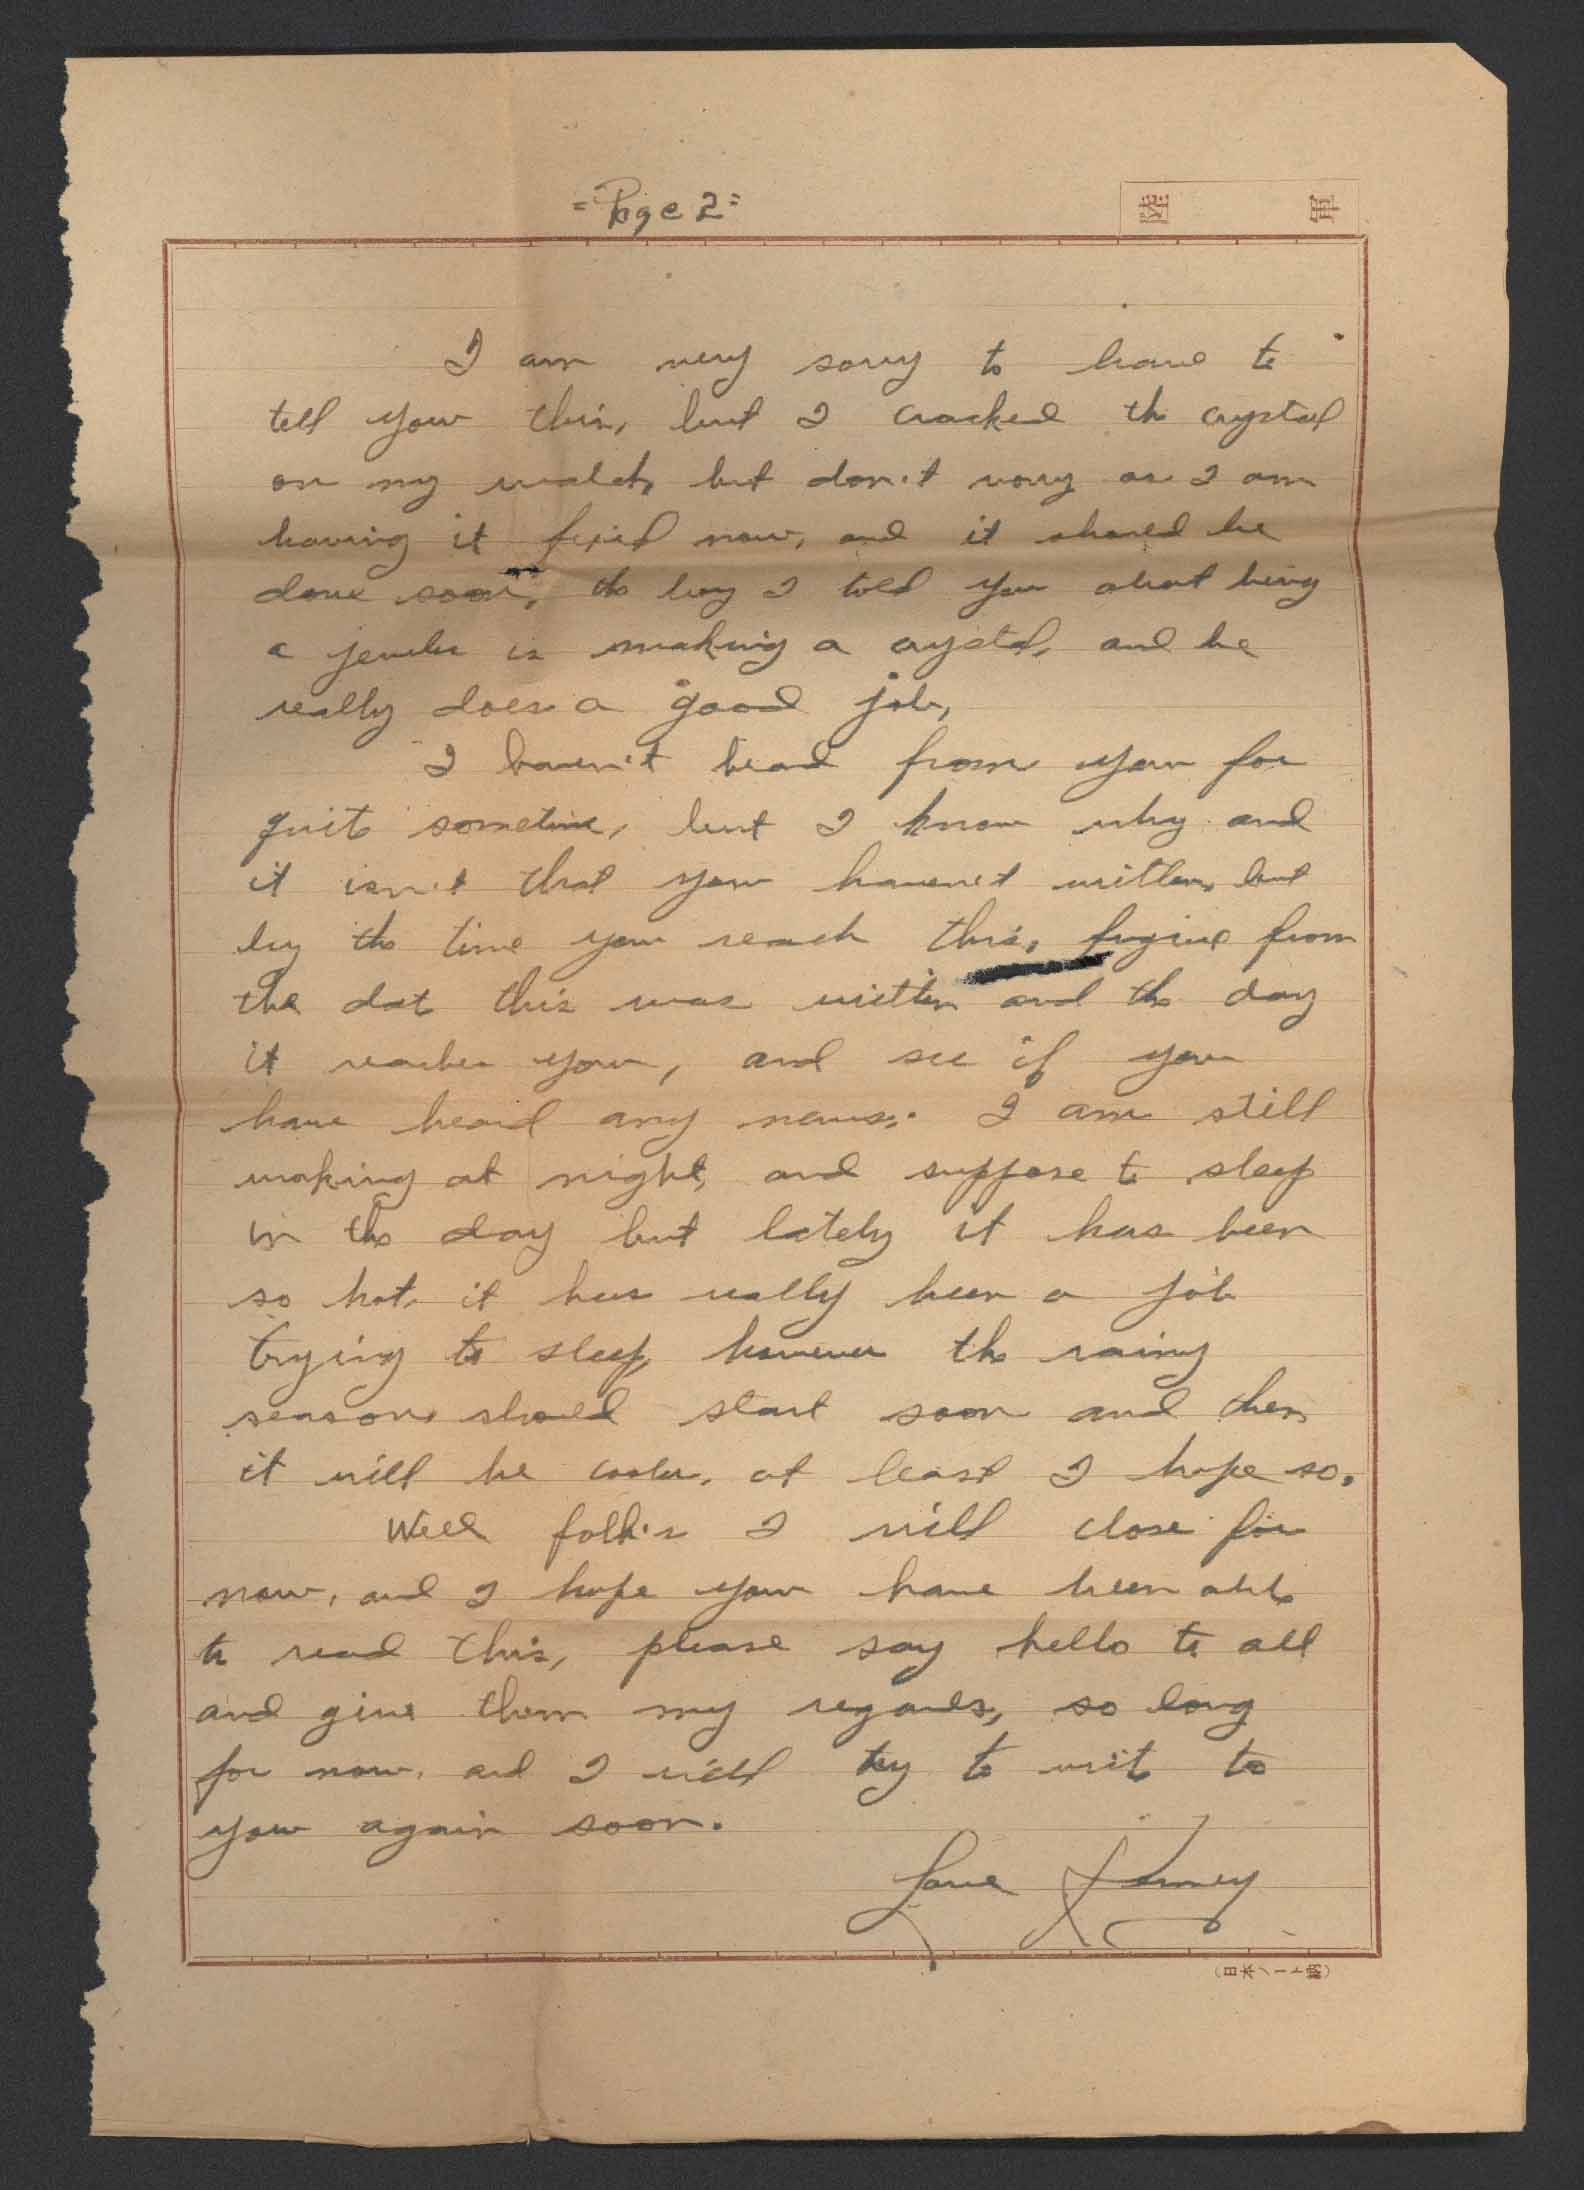 = Page 2 =
I am very sorry to have to
tell you this, but I cracked the crystal
on my watch, but don't worry as I am
having it fixed now, and it should be
done soon, the boy I told you about being
a jeweler is making a crystal, and he
really does a good job,
I haven't heard from you for
quite sometime, but I know why and
it isn't that you haven't written, but
by the time you reach this, from
the date this was written and the day
it reaches you, and see if you
have heard any news. I am still
working at night, and suppose to sleep
in the day but lately it has been
so hot, it has really been a job
trying to sleep, however the rainy
season should start soon and then
it will be cooler, at least I hope so.
Well folk's I will close for
now, and I hope you have been able
to read this, please say hello to all
and give them my regards, so long
for now, and I will try to write to
you again soon.
Love
(日本ノート納)